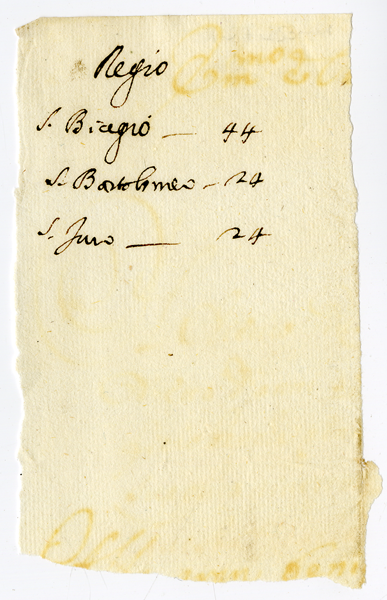 Regio
S. Biagio — 44
S. Bartolomeo - 24
S. — 24